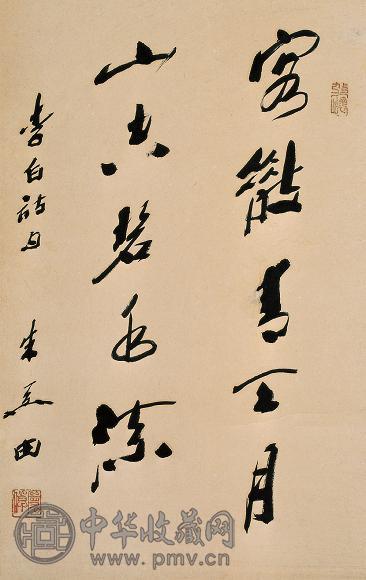 客散青天月
山空碧水流
李白诗句 朱关田
中华收藏网
www.pmv.cn